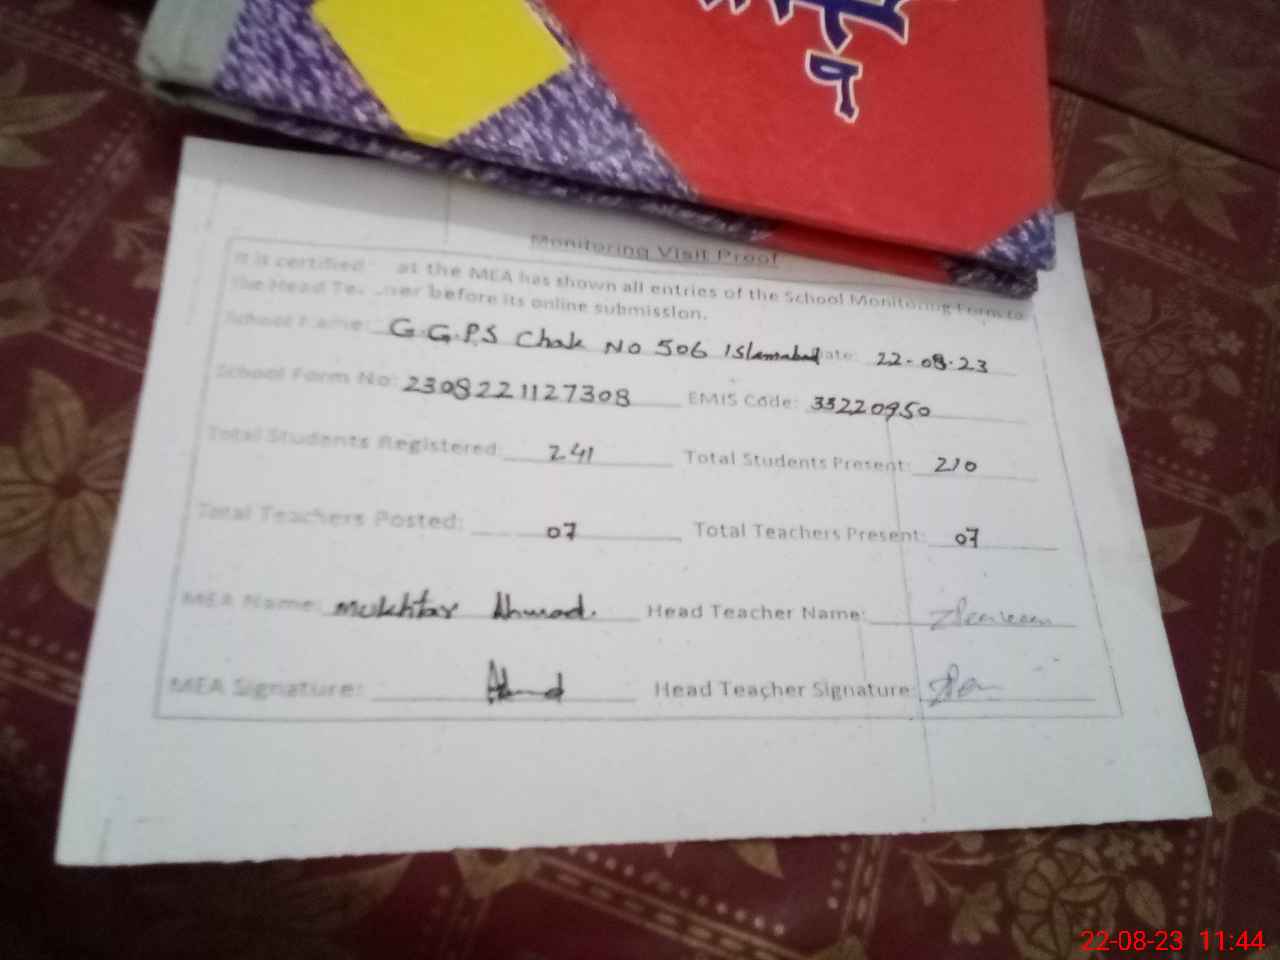 ९
Monitoring Visit Proof
It is certified at the MEA has shown all entries of the School Monitoring Form to
the Head Te...ner before its online submission.
School Name: G.G.P.S Chak No 506 Islamabad ate: 22-08-23
School Form No: 2308221127308 EMIS Code: 33220950
Total Students Registered: 241 Total Students Present: 210
Total Teachers Posted: 07 Total Teachers Present: 07
MEA Name: Mukhtar Ahmad. Head Teacher Name:
MEA Signature: Ahmad Head Teacher Signature:
22-08-23 11:44